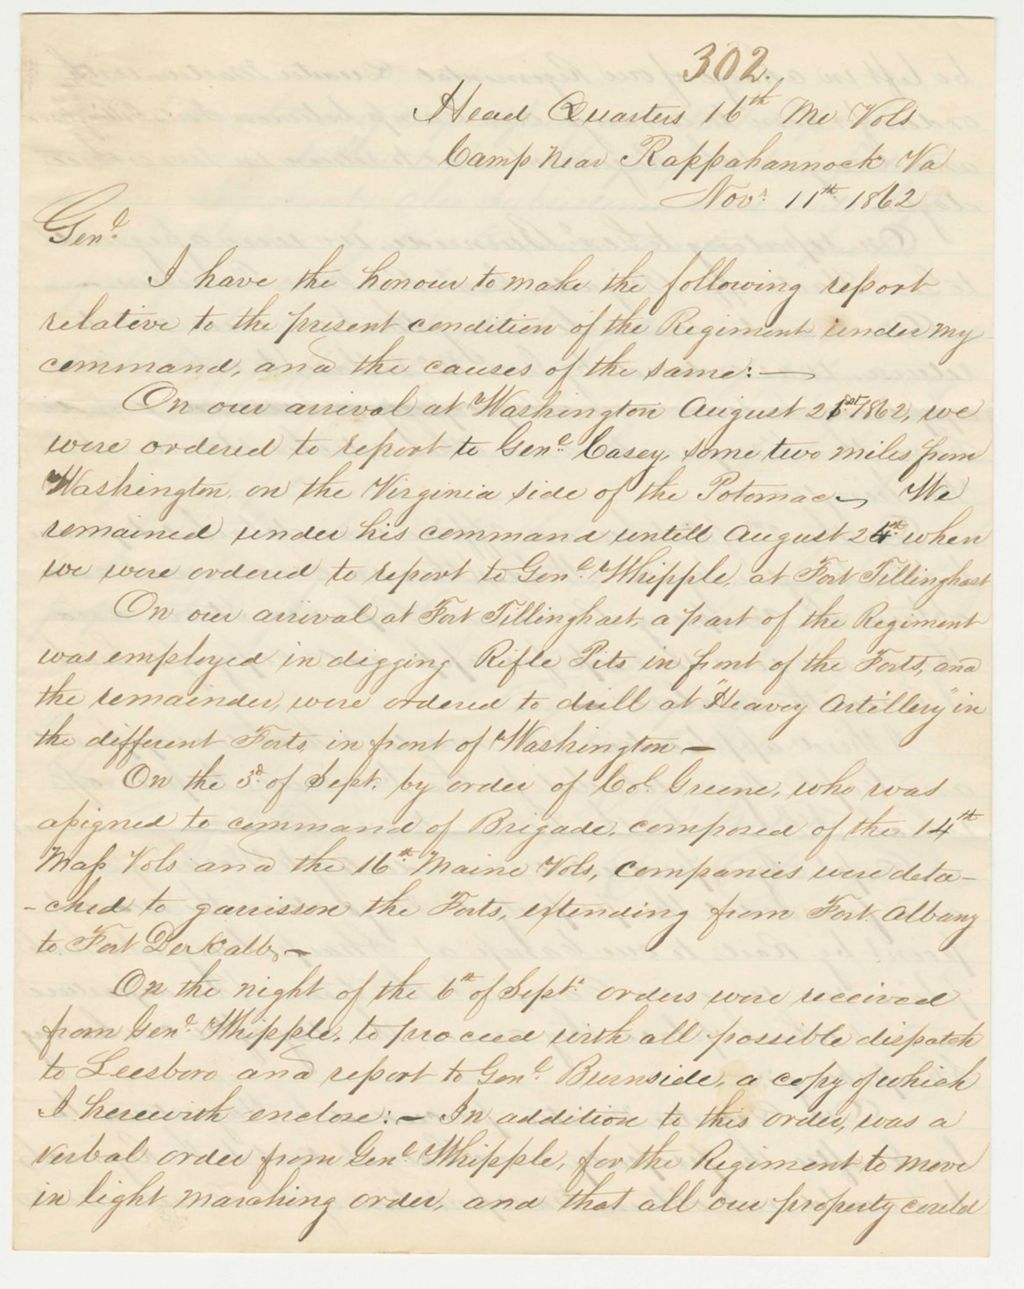 302.
Head Quarters 16th Me Vols
Camp near Rappahannock Va
Novr. 11th 1862
Genl.
I have the honour to make the following report
relative to the present condition of the Regiment under my
command, and the causes of the same:—
On our arrival at Washington August 21st 1862, we
were ordered to report to Genl. Casey, some two miles from
Washington, on the Virginia side of the Potomac—, We
remained under his command untill August 24th. when
we were ordered to report to Genl. Whipple, at Fort Tillinghast
On our arrival at Fort Tillinghast, a part of the Regiment
was employed in digging Rifle Pits in front of the Forts, and
the remainder, were ordered to drill at "Heavy Artillery" in
the different Forts in front of Washington—
On the 3d. of Sept. by order of Col. Greene, who was
assigned to command of Brigade, composed of the 14th
Mass Vols and the 16th. Maine Vols, companies were deta-
-ched to garrisson the Forts, extending from Fort Albany
to Fort DeKalb,—
On the night of the 6th of Septr. orders were received
from Genl. Whipple, to proceed with all possible dispatch
to Leesboro and report to Genl. Burnside, a copy of which
I herewith enclose:— In addition to this order, was a
verbal order from Genl. Whipple, for the Regiment to move
in light marching order, and that all our property could